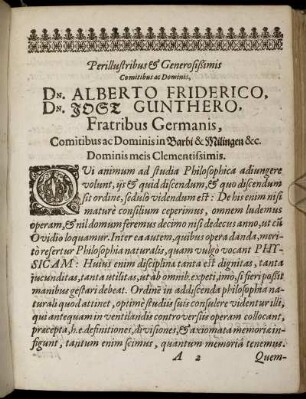 Perillustribus & Generosissimis
Comitibus ac Dominis,
DN. ALBERTO FRIDERICO,
DN. JOST GUNTHERO,
Fratribus Germanis,
Comitibus ac Dominis in Barbi & Mülingen &c.
Dominis meis Clementissimis.
QVi animum ad studia Philosophica adiungere
volunt, ijs & quid discendum, & quo discendum
sit ordine, sedulò videndum est: De his enim nisi
mature consilium ceperimus, omnem ludemus
operam, & nil domum feremus decimo nisi dedecus anno, ut cū
Ovidio loquamur. Inter ea autem, quibus opera danda, meri-
tò refertur Philosophia naturalis, quam vulgò vocant PHY-
SICAM: Huius enim disciplinæ tanta est dignitas, tanta
jucunditas, tanta utilitas, ut ab omnib. expeti, imò, si fieri possit
manibus gestari debeat. Ordinē in addiscenda philosophia na-
turali quod attinet, optimè studiis suis consulere videntur illi,
qui antequam in ventilandis controversiis operam collocant,
præcepta, h.e. definitiones, divisiones, & axiomata memoria in-
figunt, tantum enim scimus, quantum memoriâ tenemus.
A 2 Quem-